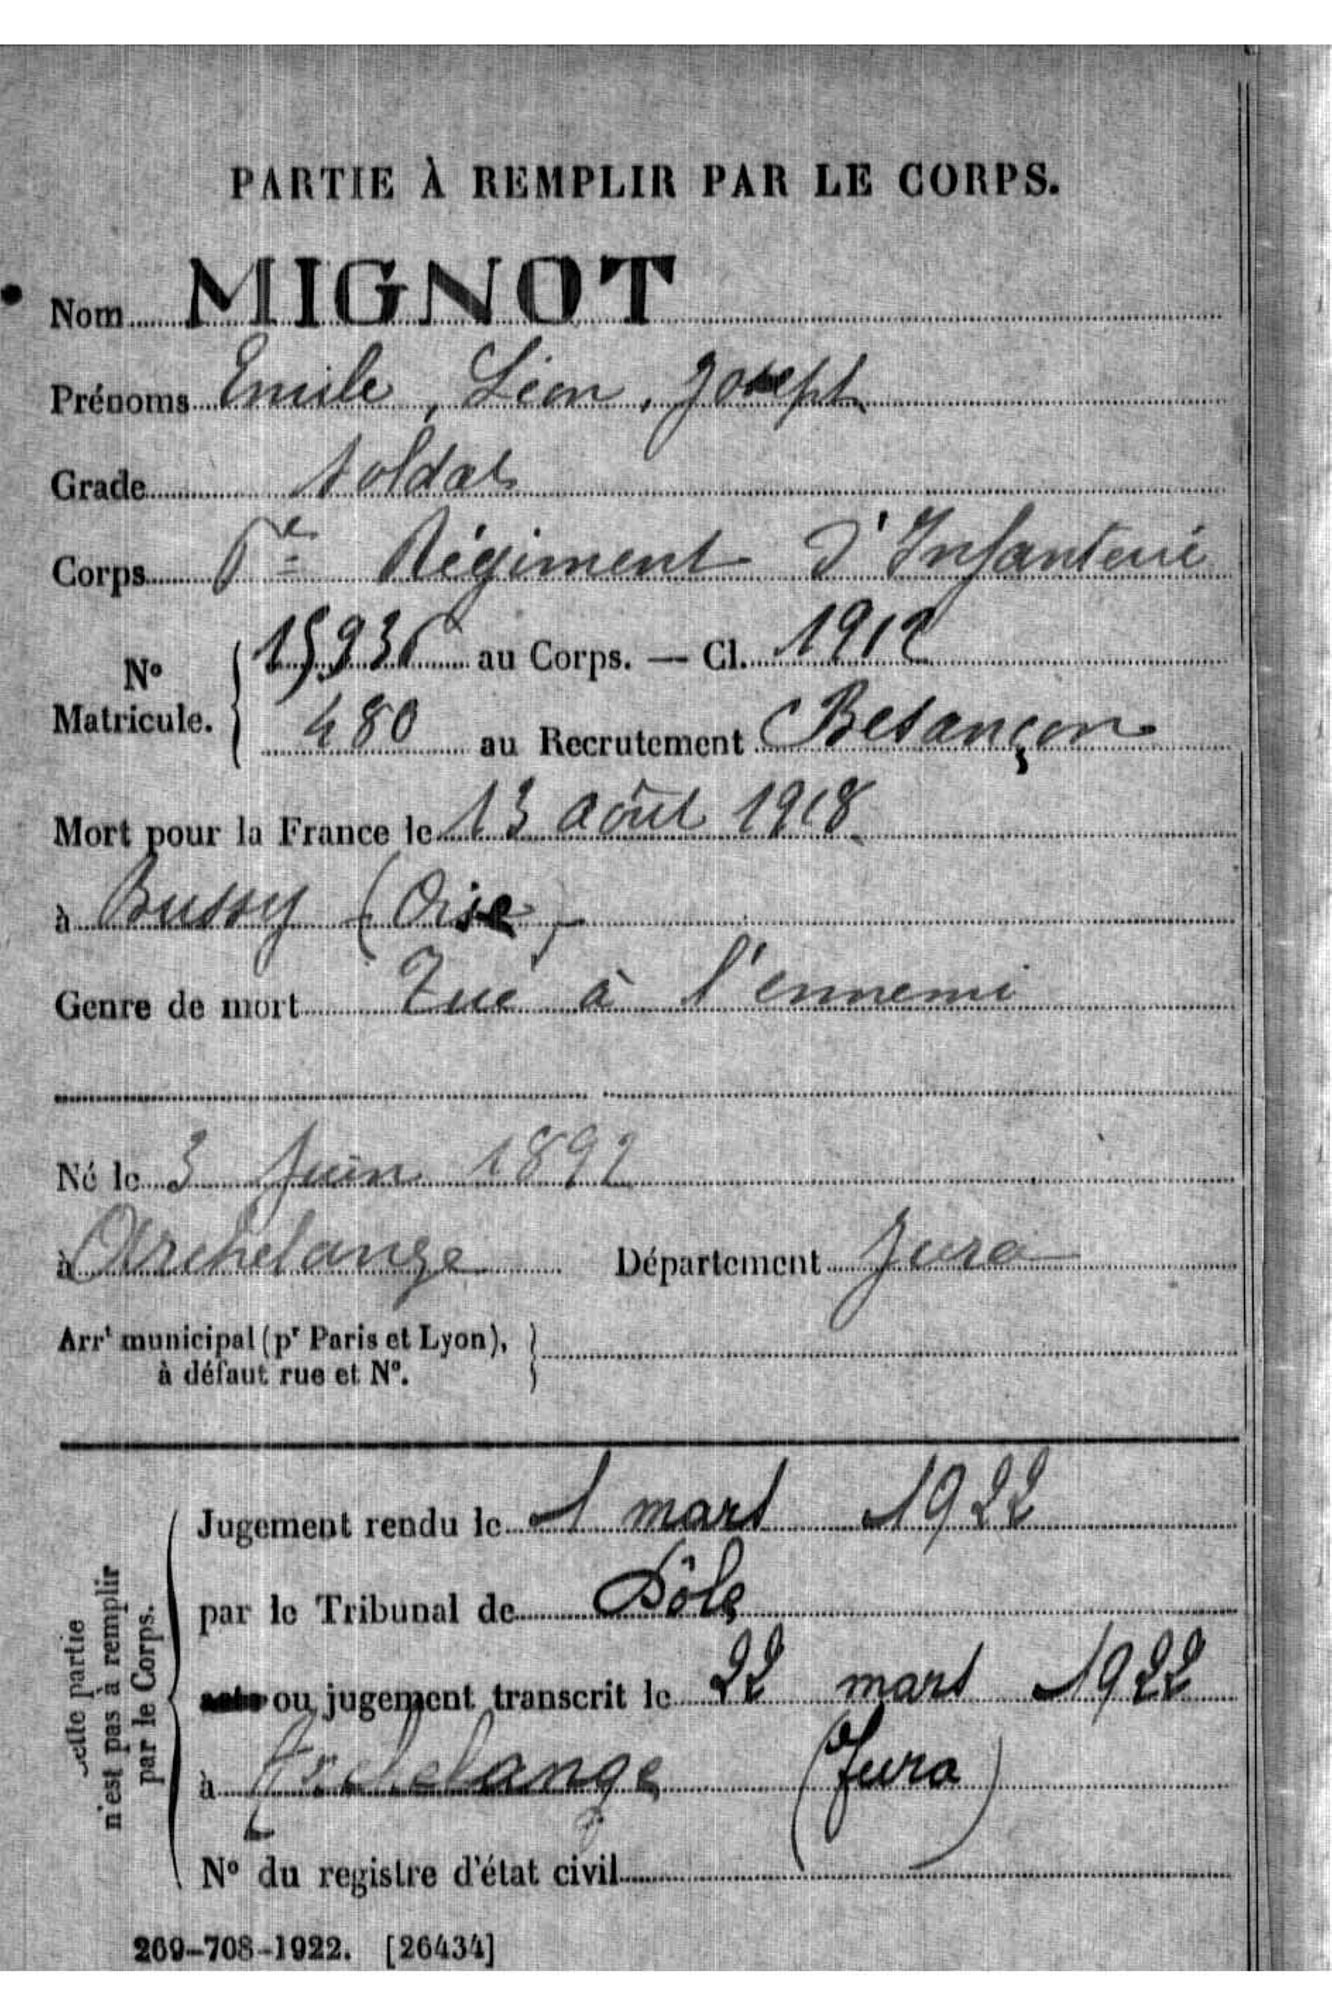 PARTIE À REMPLIR PAR LE CORPS.
Nom MIGNOT
Prénoms Emile, Léon, Joseph
Grade soldat
Corps 6e Régiment d'Infanterie
15936 au Corps. — Cl. 1912
No
Matricule.
480 au Recrutement Besançon
Mort pour la France le 13 août 1918
à Bussy (Oise)
Genre de mort Tué à l'ennemi
Né le 3 Juin 1892
à Archelange Département Jura
Arrt municipal (pr Paris et Lyon),
à défaut rue et No.
Jugement rendu le 1 mars 1922
par le Tribunal de Dôle
acte ou jugement transcrit le 22 mars 1922
à Archelange (Jura)
No du registre d'état civil
elle partie
n'est pas à remplir
par le Corps.
269-708-1922. [26434]